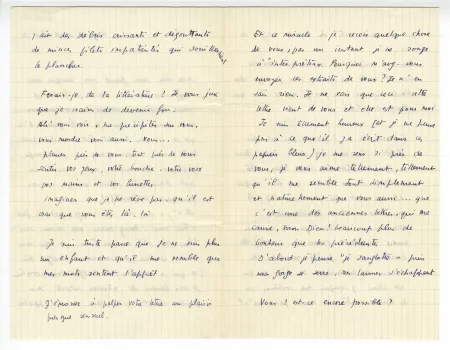 l'air des débris suivants et dégouttants
de minces filets ensanglantés qui souillent
le plancher.
Ferais-je de la littérature ! Je vous jure
que je crains de devenir fou.
Ah! vous voir, me précipiter sur vous,
vous mordre, vous aussi, vous...
pleurer près de vous, tout près de vous
sentir vos yeux, votre bouche, votre voix
vos mains et vos lunettes.
imaginer que je ne rêve pas, qu'il est
vrai que vous êtes là, là
Je suis triste parce que je ne suis plus
un enfant et qu'il me semble que
mes mots sentent l'apprêt.
J'éprouve à palper votre lettre un plaisir
presque sensuel.
Et ce miracle : je reçois quelque chose
de vous, pas un instant je ne songe
à l'interpréter. Pourquoi m'avez-vous
envoyé ces extraits de vous? Je n'en
sais rien. Je ne sais que ceci : cette
lettre vient de vous et elle est pour moi
Je suis tellement heureux (et je ne pense
pas à ce qu'il y a écrit dans ces
papiers bleus) je me sens si près de
vous, je vous aime tellement, tellement
qu'il me semble tout simplement
et naturellement que vous aussi... que
c'est une des anciennes lettres, qui me
cause, mon Dieu! beaucoup plus de
bonheur que les précédentes.
D'abord je pense "je sanglote" puis
ma gorge se serre, un larmes s'échappent
Vous! est-ce encore possible?